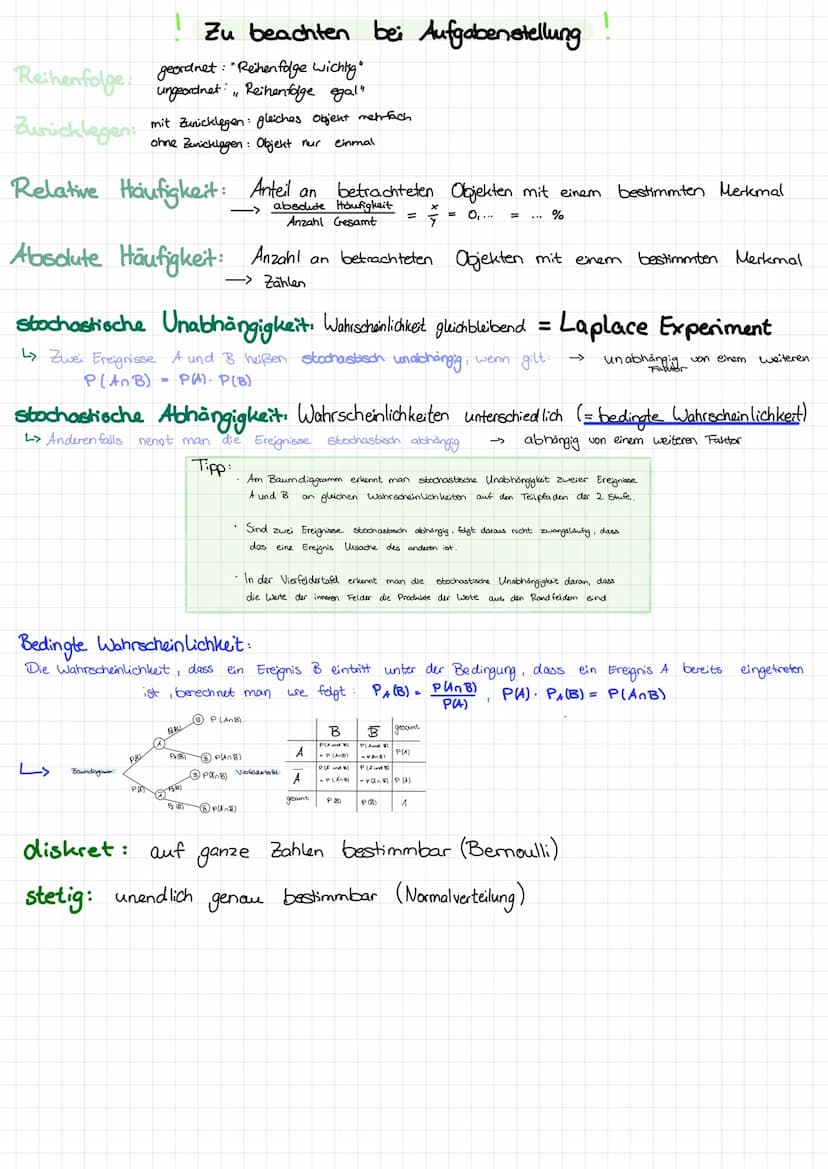 ! Zu beachten bei Aufgabenstellung !
Reihenfolge: geordnet: "Reihenfolge wichtig"
ungeordnet: „Reihenfolge egal"
Zurücklegen: mit Zurücklegen: gleiches Objekt mehrfach
ohne Zurücklegen: Objekt nur einmal
Relative Häufigkeit: Anteil an betrachteten Objekten mit einem bestimmten Merkmal
→ absolute Häufigkeit / Anzahl Gesamt = x/y = 0,... = ... %
Absolute Häufigkeit: Anzahl an betrachteten Objekten mit einem bestimmten Merkmal
→ Zählen
stochastische Unabhängigkeit: Wahrscheinlichkeit gleichbleibend = Laplace Experiment
↳ Zwei Ereignisse A und B heißen stochastisch unabhängig, wenn gilt: → unabhängig von einem weiteren
Faktor
P(A∩B) = P(A)·P(B)
stochastische Abhängigkeit: Wahrscheinlichkeiten unterschiedlich (= bedingte Wahrscheinlichkeit)
↳ Anderenfalls nennt man die Ereignisse stochastisch abhängig → abhängig von einem weiteren Faktor
Tipp:
· Am Baumdiagramm erkennt man stochastische Unabhängigkeit zweier Ereignisse
A und B an gleichen Wahrscheinlichkeiten auf den Teilpfaden der 2 Stufe.
· Sind zwei Ereignisse stochastisch abhängig, folgt daraus nicht zwangsläufig, dass
das eine Ereignis Ursache des anderen ist.
· In der Vierfeldertafel erkennt man die stochastische Unabhängigkeit daran, dass
die Werte der inneren Felder die Produkte der Werte aus den Randfeldern sind
Bedingte Wahrscheinlichkeit:
Die Wahrscheinlichkeit, dass ein Ereignis B eintritt unter der Bedingung, dass ein Ereignis A bereits eingetreten
ist, berechnet man wie folgt: P_A(B) = P(A∩B) / P(A), P(A)·P_A(B) = P(A∩B)
↳ Baumdiagramm
P(A∩B)
Vierfeldertafel
B B̅ gesamt
A P(A)
A̅
gesamt P(B) P(B̅) 1
diskret: auf ganze Zahlen bestimmbar (Bernoulli)
stetig: unendlich genau bestimmbar (Normalverteilung)